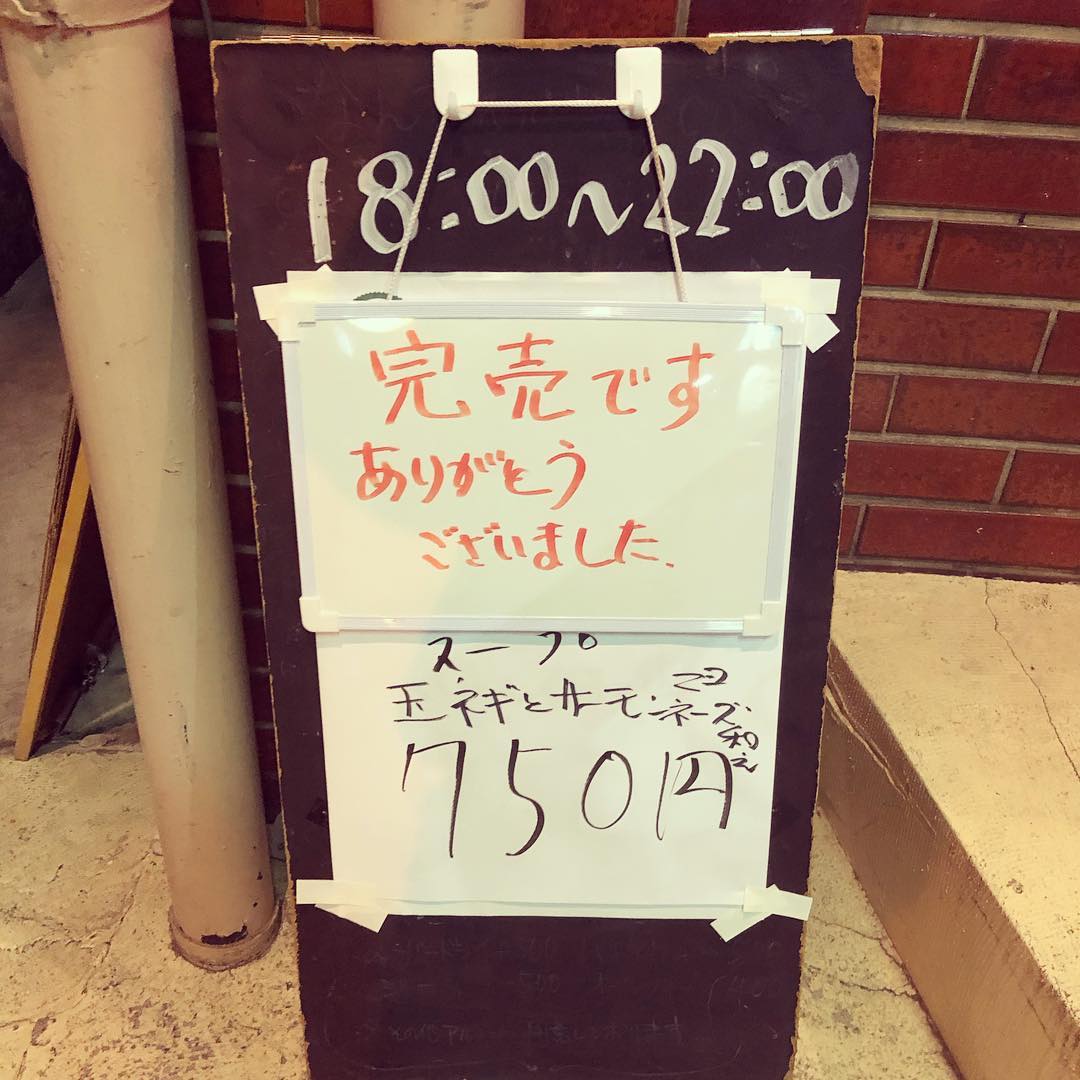 18:00~22:00
完売です
ありがとう
ございました.
スープ
玉ネギとサーモンマヨネーズ和え
750円